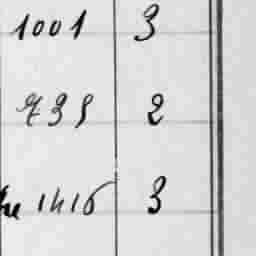 1001 3
735 2
1416 3